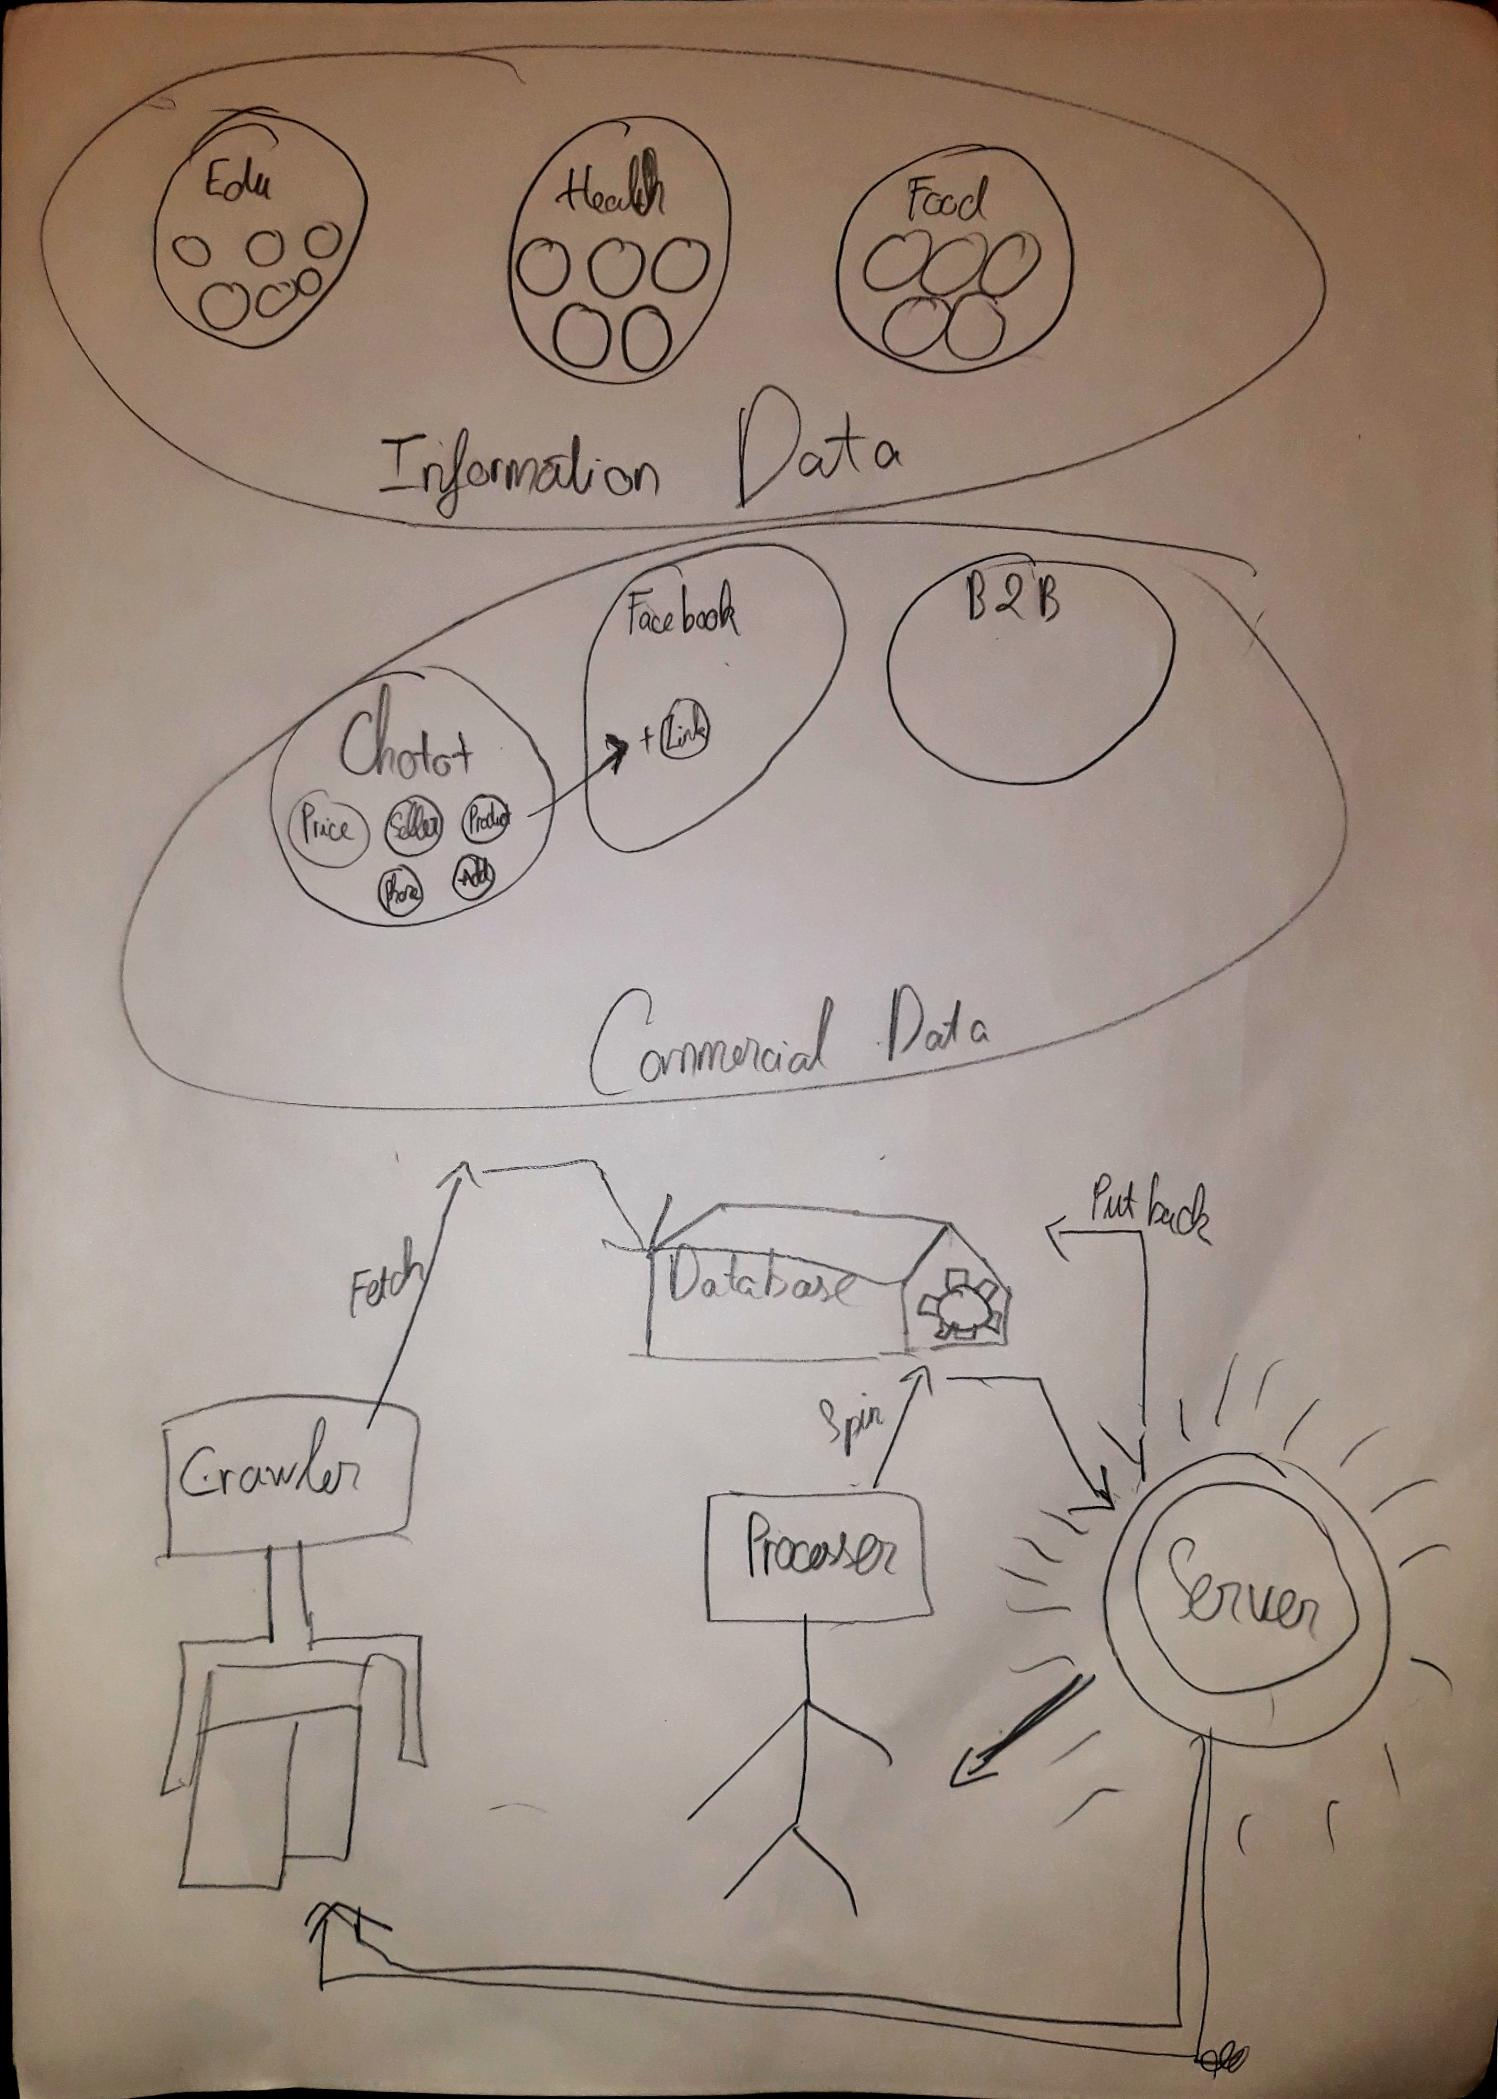 Edu
Health
Food
Information Data
Facebook
B2B
+ Link
Chotot
Price
Seller
Product
Phone
Add
Commercial Data
Put back
Fetch
Database
Spin
Crawler
Processer
Server